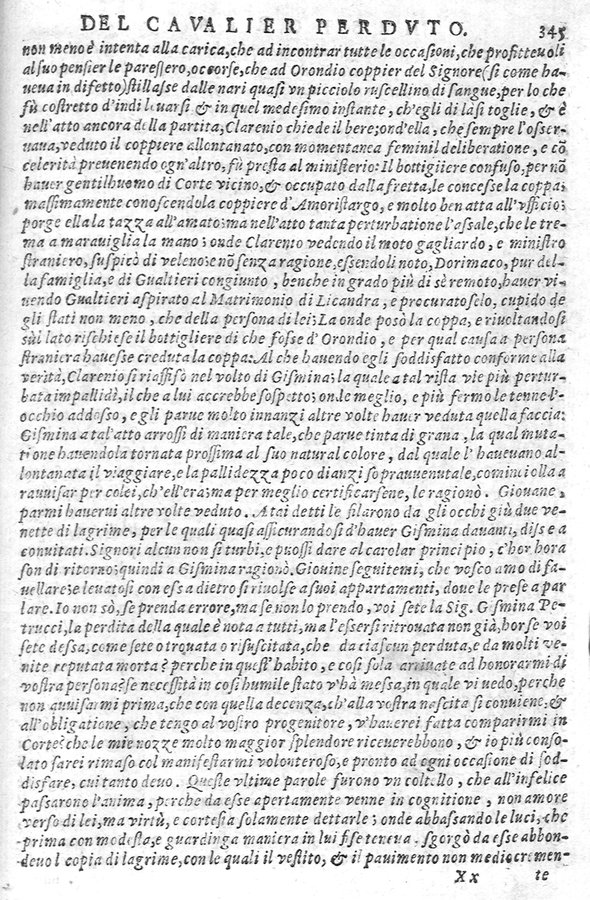 DEL CAVALIER PERDVTO. 345
non meno è intenta alla carica, che ad incontrar tutte le occasioni, che profitteuoli
al suo pensier le paressero, occorse, che ad Orondio coppier del Signore (si come ha-
ueua in difetto) stillasse dalle nari quasi vn picciolo ruscellino di sangue, per lo che
fù costretto d'indi leuarsi & in quel medesimo instante, ch'egli di là si toglie, & è
nell'atto ancora della partita, Clarenio chiede il bere; ond'ella, che sempre l'osser-
uaua, veduto il coppiere allontanato, con momentanea feminil deliberatione, e cõ
celerità preuenendo ogn'altro, fù presta al ministerio: Il bottigliere confuso, per nõ
hauer gentilhuomo di Corte vicino, & occupato dalla fretta, le concesse la coppa;
massimamente conoscendola coppiere d'Amoristargo, e molto ben atta all'vfficio;
porge ella la tazza all'amato; ma nell'atto tanta perturbatione l'assale, che le tre-
ma a marauiglia la mano; onde Clarenio vedendo il moto gagliardo, e ministro
straniero, suspicò di veleno: e nõ senza ragione, essendoli noto, Dorimaco, pur del-
la famiglia, e di Gualtieri congiunto, benche in grado più di sè remoto, hauer vi-
uendo Gualtieri aspirato al Matrimonio di Licandra, e procuratoselo, cupido de
gli stati non meno, che della persona di lei; La onde posò la coppa, e riuoltandosi
sù'l lato richiese il bottigliere di che fosse d'Orondio, e per qual causa a persona
straniera hauesse creduta la coppa: Al che hauendo egli soddisfatto conforme alla
verità, Clarenio si riaffisò nel volto di Gismina; la quale a tal vista vie più pertur-
bata impallidì, il che a lui accrebbe sospetto; onde meglio, e più fermo le tenne l'-
occhio addosso, e gli parue molto innanzi altre volte hauer veduta quella faccia:
Gismina a tal'atto arrossì di maniera tale, che parue tinta di grana, la qual muta-
tione hauendola tornata prossima al suo natural colore, dal quale l'haueuano al-
lontanata il viaggiare, e la pallidezza poco dianzi soprauuenutale, cominciolla a
rauuisar per colei, ch'ell'era; ma per meglio certificarsene, le ragionò. Giouane,
parmi hauerui altre volte veduto. A tai detti le filarono da gli occhi giù due ve-
nette di lagrime, per le quali quasi assicurandosi d'hauer Gismina dauanti, disse a
conuitati. Signori alcun non si turbi, e puossi dare al carolar principio, c'hor hora
son di ritorno; quindi a Gismina ragionò. Giouine seguitemi, che vosco amo di fa-
uellare; e leuatosi con essa dietro si riuolse a suoi appartamenti, doue le prese a par
lare. Io non sò, se prenda errore, ma se non lo prendo, voi sete la Sig. Gismina Pe-
trucci, la perdita della quale è nota a tutti, ma l'essersi ritrouata non già, hor se voi
sete dessa, come sete o trouata o risuscitata, che da ciascun perduta, e da molti ve-
nite reputata morta? perche in quest'habito, e così sola arriuate ad honorarmi di
vostra persona? se necessità in così humile stato v'hà messa, in quale vi vedo, perche
non auuisarmi prima, che con quella decenza, ch'alla vostra nascita si conuiene, &
all'obligatione, che tengo al vostro progenitore, v'hauerei fatta comparirmi in
Corte? che le mie nozze molto maggior splendore riceuerebbono, & io più conso-
lato sarei rimaso col manifestarmi volonteroso, e pronto ad ogni occasione di sod-
disfare, cui tanto deuo. Queste vltime parole furono vn coltello, che all'infelice
passarono l'anima, perche da esse apertamente venne in cognitione, non amore
verso di lei, ma virtù, e cortesia solamente dettarle; onde abbassando le luci, che
prima con modesta, e guardinga maniera in lui fise teneua. sgorgò da esse abbon-
deuol copia di lagrime, con le quali il vestito, & il pauimento non mediocremen-
Xx te